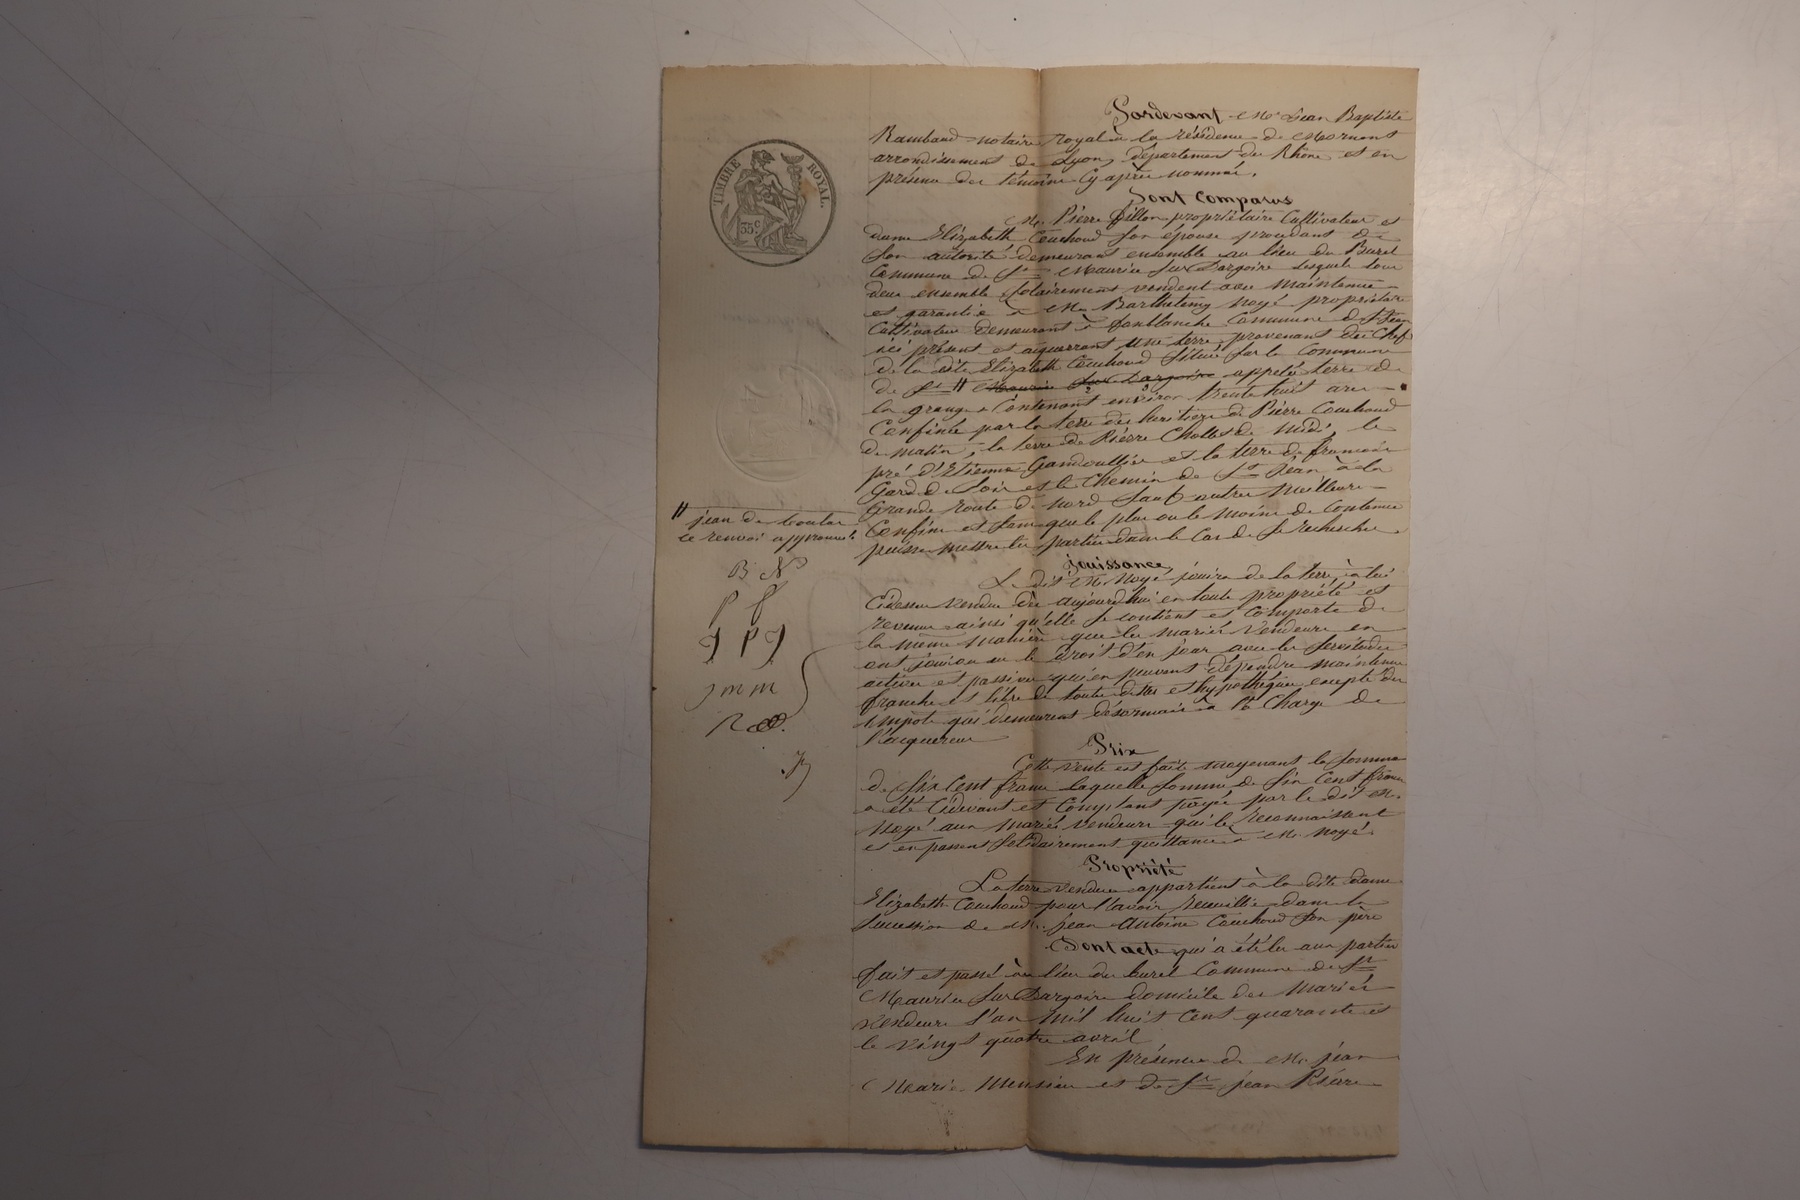 TIMBRE ROYAL.
35 c
Pardevant Me Jean Baptiste
Rambaud notaire royal à la résidence de Mornant
arrondissement de Lyon, département du Rhône et en
présence des témoins cy après nommés.
Sont Comparus
Mr Pierre Pillon propriétaire Cultivateur et
dame Elizabeth Couchoud son épouse procedant de
son autorité demeurant ensemble au lieu du Burel
Commune de St Maurice sur Dargoire lesquels tous
deux ensemble solidairement vendent avec maintenue
et garantie à Mr Barthelemy Noyé propriétaire
Cultivateur demeurant à fontblanche Commune de St Jean
ici présent et aiquerrant une terre provenant du Chef
de la dite Elizabeth Couchoud située sur la Commune
de St // Maurice Sur Dargoire appelée terre de
la grange Contenant environ trente huit ares
Confinée par la terre des heritiers de Pierre Couchoud
de matin, la terre de Pierre Chollet de midi, le
pré d'Etienne et la terre de françois
Gard de soir et le Chemin de St Jean à la
Grande route de nord Sauf autres meilleurs
Confins et sans que le plus ou le moins de Contenue
puisse mettre les parties dans le Cas de se rechercher.
// jean de toulas
ce renvoi approuvé
B N
P P
J P J
J m m
R
Jouissance
Le dit Mr Noyé jouira de la terre à lui
Cidessus vendue dès aujourd'hui en toute propriété et
revenus ainsi qu'elle se contient et comporte de
la même manière que les mariés vendeurs en
ont joui ou eu le droit d'en jouir avec les servitudes
actives et passives qui en peuvent dépendre maintenue
franche et libre de toutes dettes et hypothèques excepté des
impots qui demeurent désormais à la Charge de
l'acquereur
Prix
Cette vente est faite moyenant la somme
de Six Cent francs laquelle somme de Six Cent francs
a été Cidevant et Comptant payée par le dit Mr
Noyé aux mariés vendeurs qui le reconnaissent
et en passent solidairement quittance à Mr Noyé.
Propriété
La terre vendue appartient à la dite dame
Elizabeth Couchoud pour l'avoir recueillie dans la
sucession de Mr jean Antoine Couchoud son père
Dont acte qui a été lu aux parties
fait et passé au lieu du burel Commune de St
Maurice sur Dargoire domicile des mariés
vendeurs l'an mil huit Cent quarante et
le vingt quatre avril
En présence de Mr jean
Marie et de Sr jean Pierre